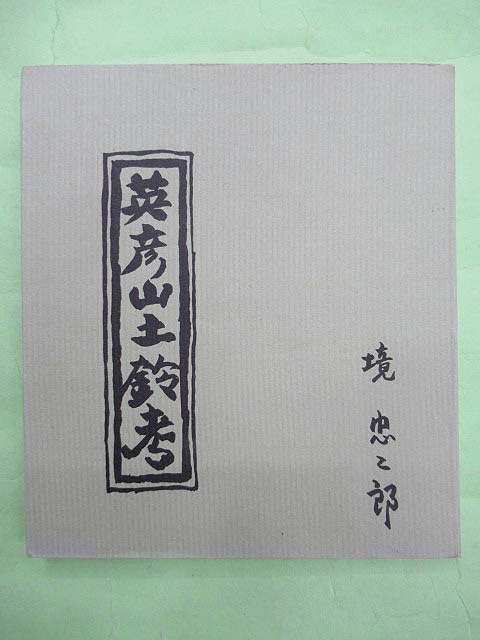 英彦山土鈴考
境忠二郎